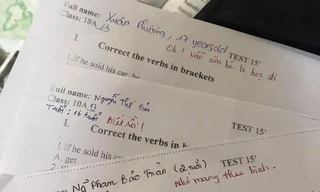 Full name: Xuân Phương, 17 years old TEST 15'
Class: 10A13 Ok! Vẫn còn bé lo học đi
I. Correct the verbs in brackets
1.If he sold his car, he
Full name: Nguyễn Thế
Class: 10A13 TEST 15'
Tuổi: 16 tuổi Biết rồi!
I. Correct the verbs in
1.If he sold his
A. get TEST 15'
Ngô Phạm Bảo Trân (2 tuổi)
Nhớ mang theo bỉm.